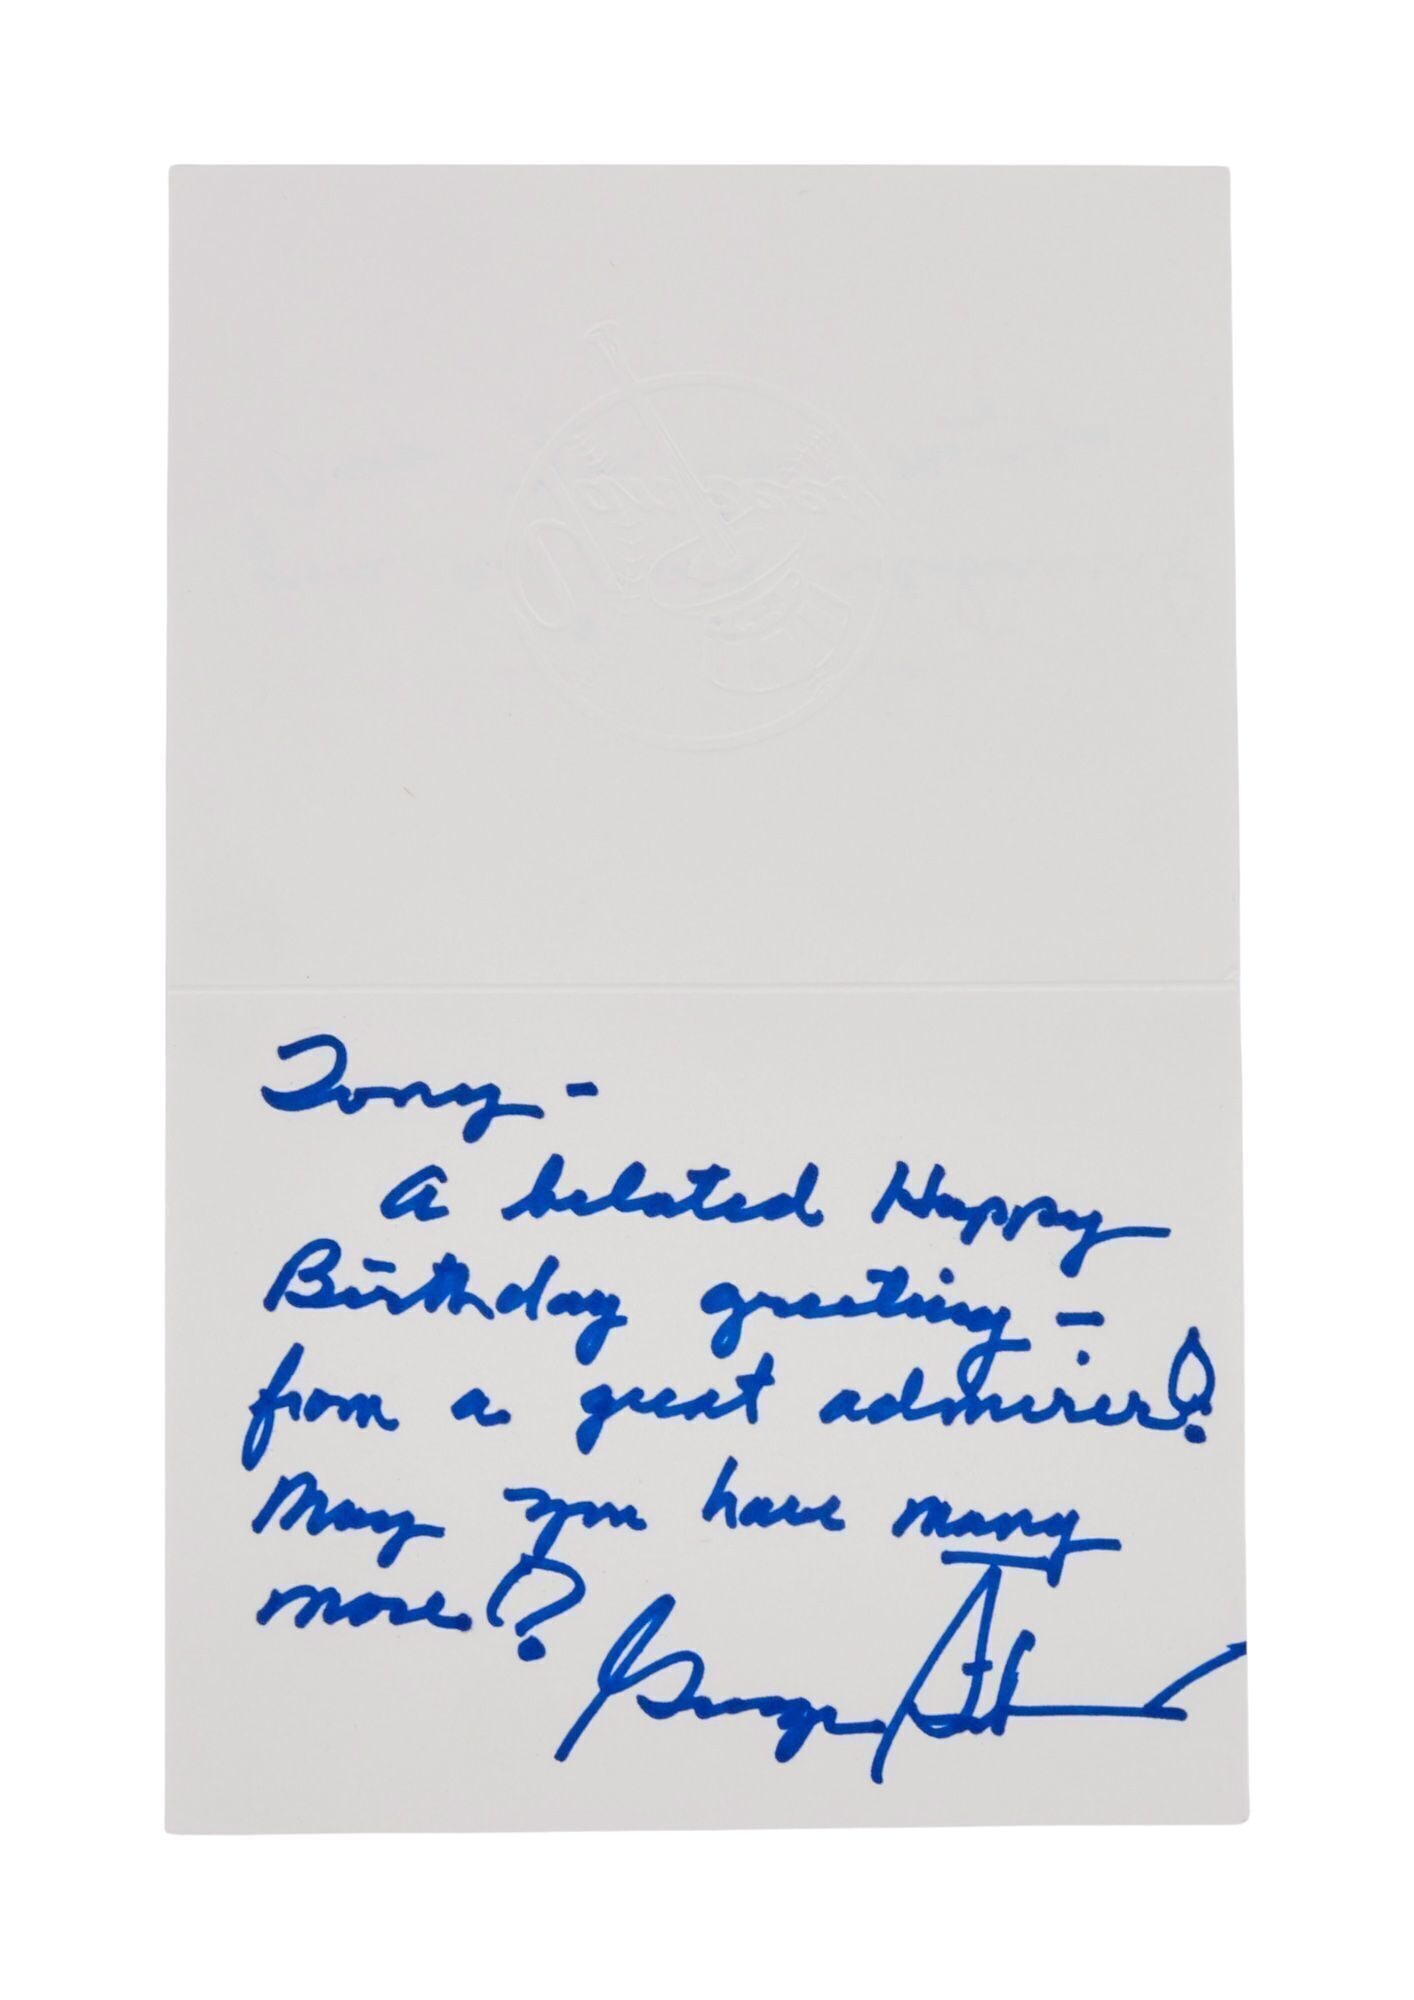 Tony -
A belated Happy
Birthday greeting -
from a great admirer!
May you have many
more!
George Steinbrenner